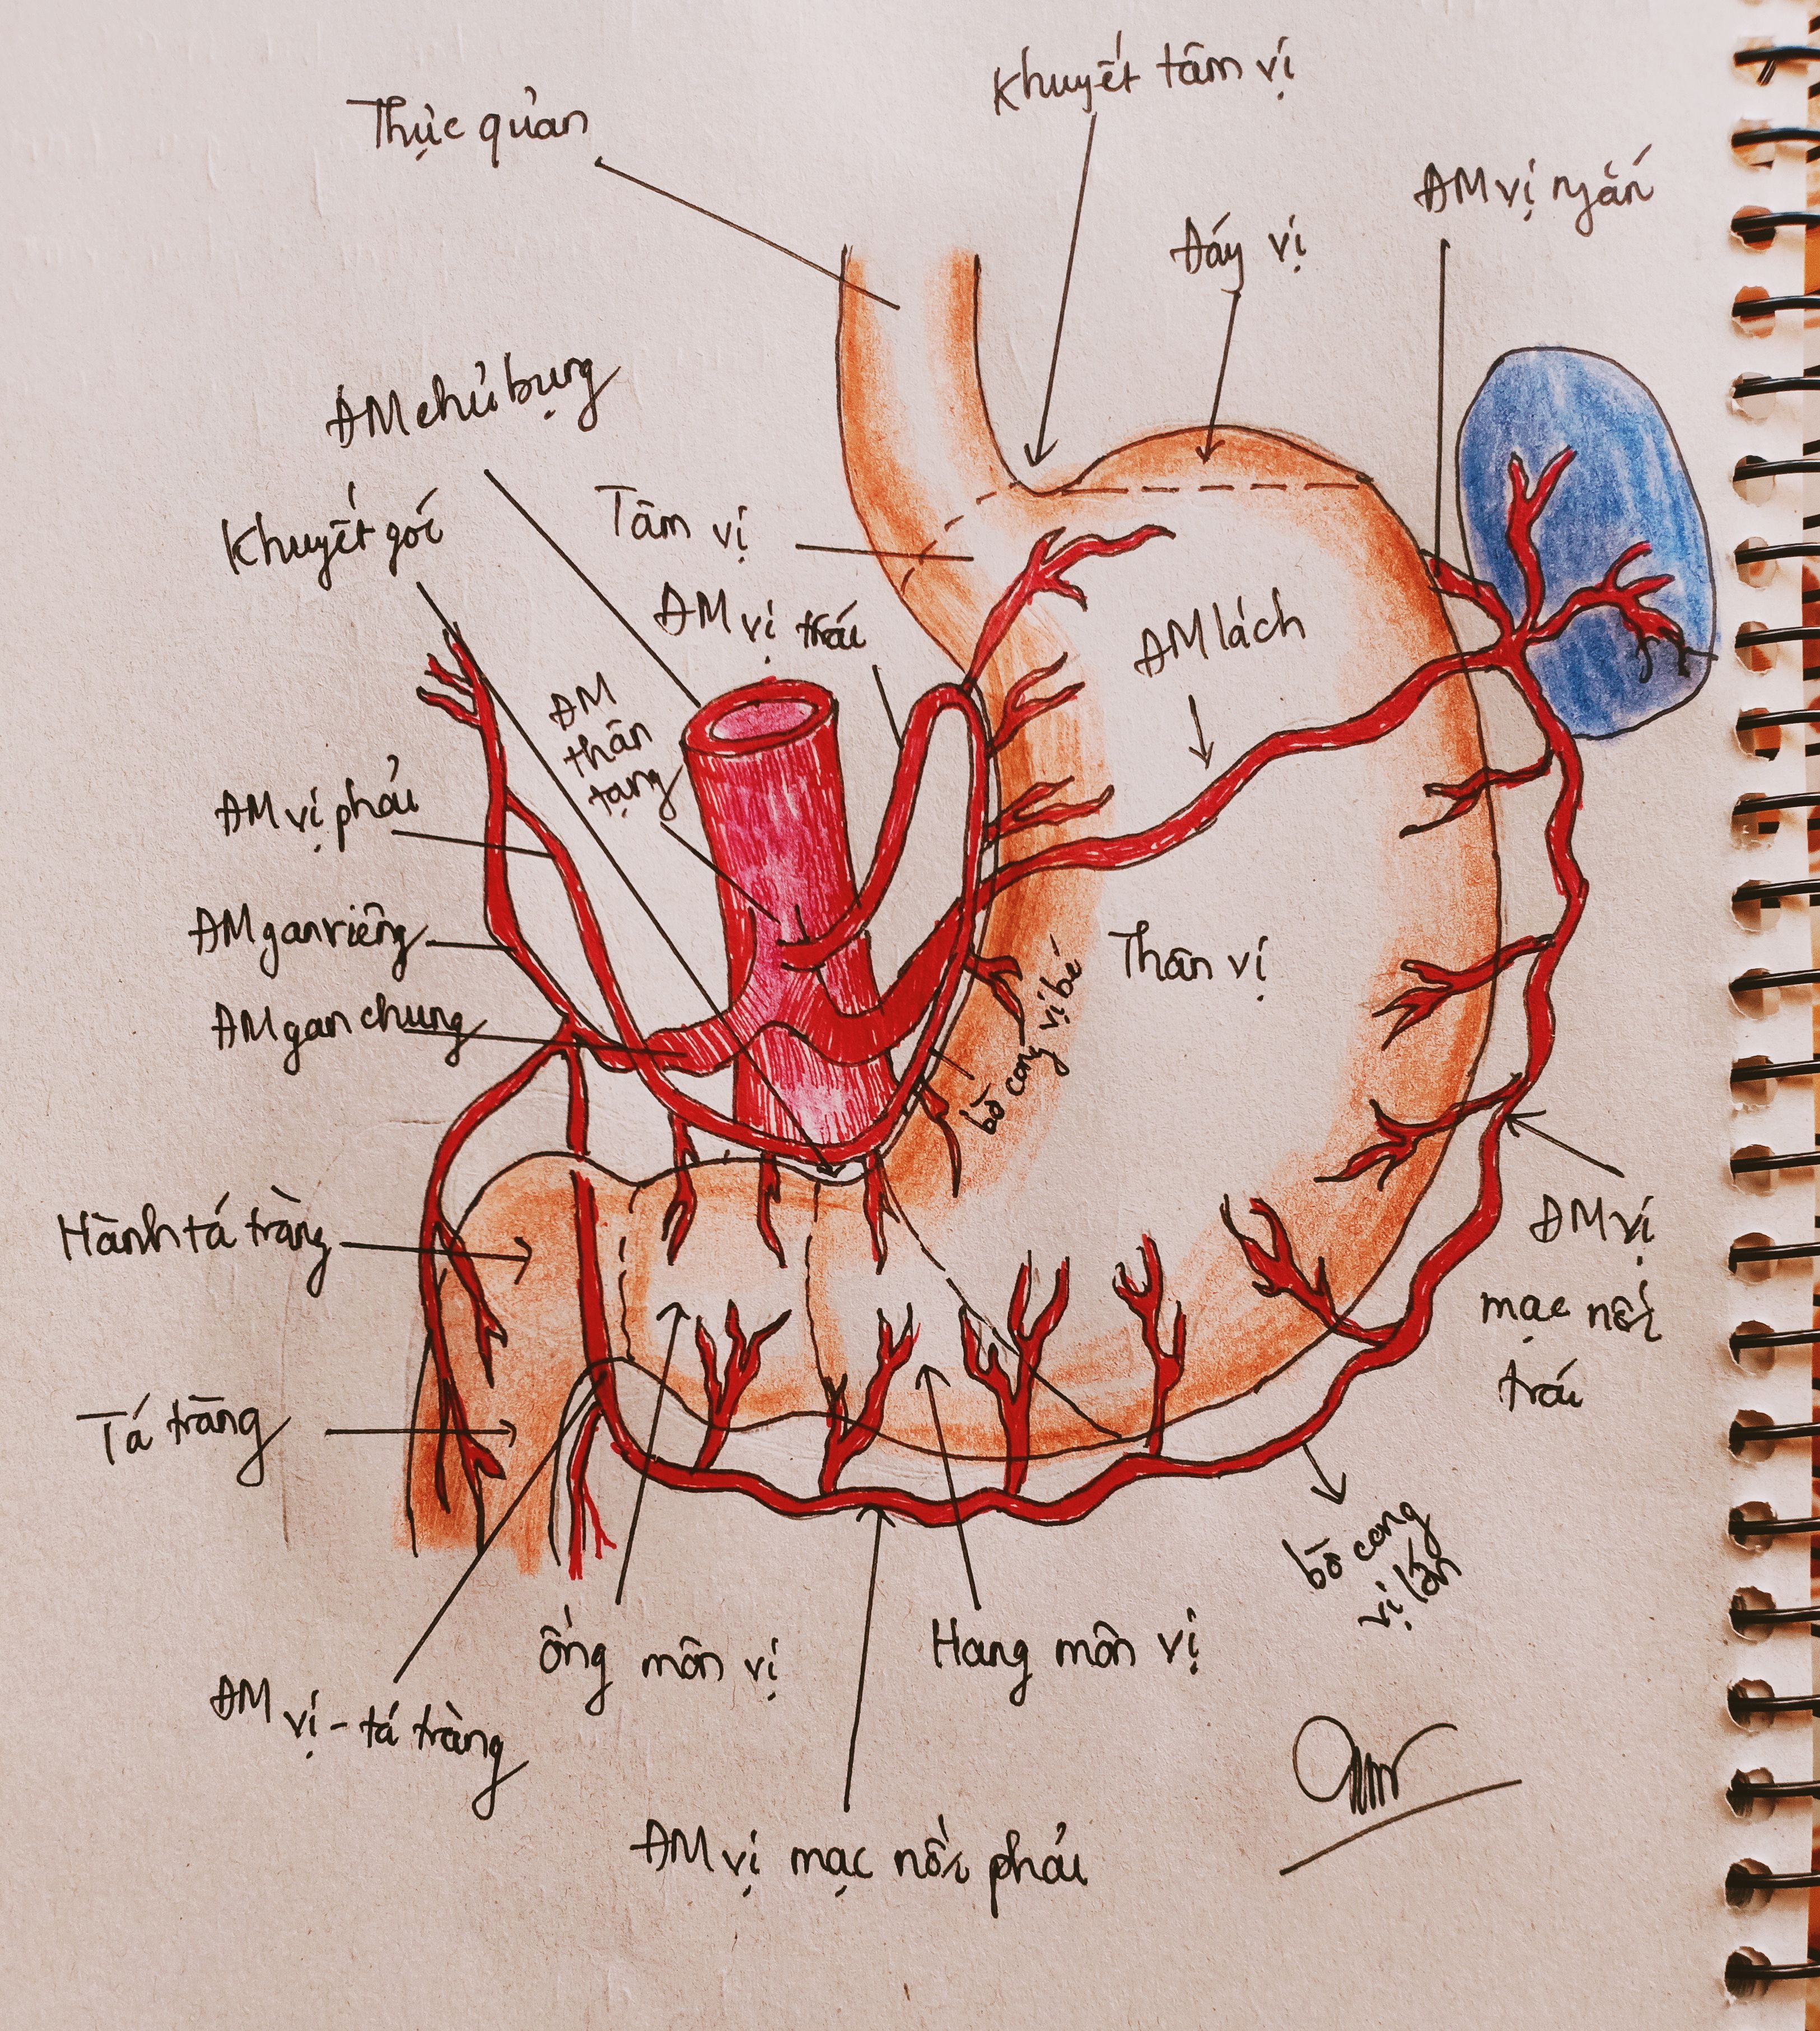 Khuyết tâm vị
Thực quản
ĐM vị ngắn
Đáy vị
ĐM chủ bụng
Khuyết góc
Tâm vị
ĐM vị trái
ĐM lách
ĐM
thân
tạng
ĐM vị phải
ĐM gan riêng
Thân vị
ĐM gan chung
bờ cong vị bé
Hành tá tràng
ĐM vị
mạc nối
trái
Tá tràng
bờ cong
vị lớn
ống môn vị
Hang môn vị
ĐM vị - tá tràng
ĐM vị mạc nối phải